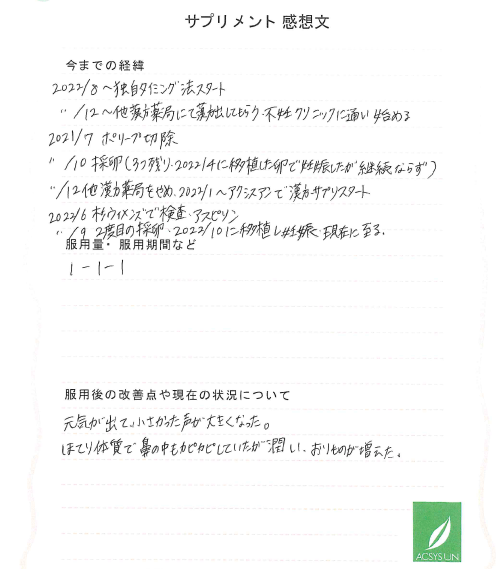 サプリメント 感想文
今までの経緯
2022/8〜独自タイミング法スタート
〃 /12〜他漢方薬局にて漢方出してもらう・不妊クリニックに通い始める
2021/7 ポリープ切除
〃 /10 採卵(3つ残り・2022/4に移植した卵で妊娠したが継続ならず)
〃/12他漢方薬局をやめ、2022/1〜アクシスアンで漢方サプリスタート
2022/6 杉ウィメンズで検査・アスピリン
〃 /9 2度目の採卵・2022/10に移植し妊娠・現在に至る。
服用量・服用期間など
1-1-1
服用後の改善点や現在の状況について
元気が出て、小さかった声が大きくなった。
ほてり体質で鼻の中もカピカピしていたが潤い、おりものが増えた。
ACSYSUN